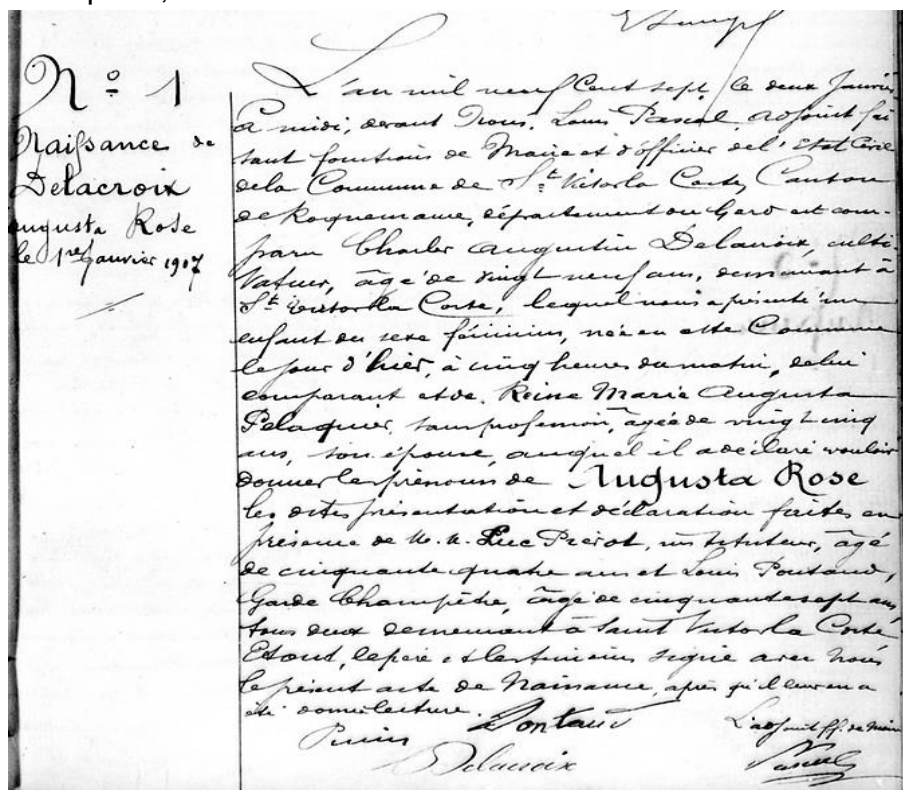 Nº 1
Naissance de
Delacroix
Augusta Rose
le 1er janvier 1907
L'an mil neuf Cent sept, le deux Janvier
à midi, devant Nous, Louis Pascal, adjoint fai
sant fonctions de Maire et d'officier de l'Etat Civil
de la Commune de St Victor la Coste, Canton
de Roquemaure, département du Gard est com-
paru Charles Augustin Delacroix, culti-
vateur, âgé de vingt neuf ans, demeurant à
St Victor la Coste, lequel nous a présenté un
enfant du sexe féminin, née en cette Commune
le jour d'hier, à cinq heures du matin, de lui
comparant et de Reine Marie Augusta
Pelaquier, sans profession, âgée de vingt cinq
ans, son épouse, auquel il a déclaré vouloir
donner les prénoms de Augusta Rose
les dites présentation et déclaration faites en
présence de M. M. Luc, instituteur, âgé
de cinquante quatre ans et Louis,
Garde Champêtre, âgé de cinquante sept ans
tous deux demeurant à Saint Victor la Coste
Et ont, le père et les témoins signé avec Nous
le présent acte de Naissance, après qu'il leur en a
été donné lecture.
L'adjoint ff. de Maire
Delacroix
Pascal